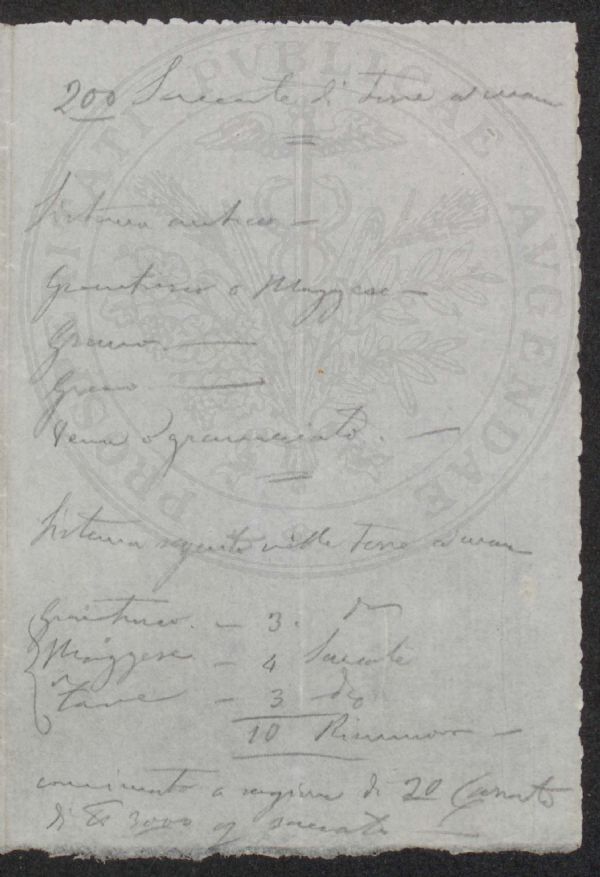 200 Saccate di Terre
Sistema antico —
Granturco o Maggese —
Grano. —
Grano —
Vena o granaccato. —
Sistema seguito nelle Terre
Granturco. — 3. do
Maggese — 4 Saccate
Fave — 3 do
10 Rinnovo —
concimato a ragione di 20
di 3000 saccata —
PROSPERITATI PVBLICAE AVGENDAE